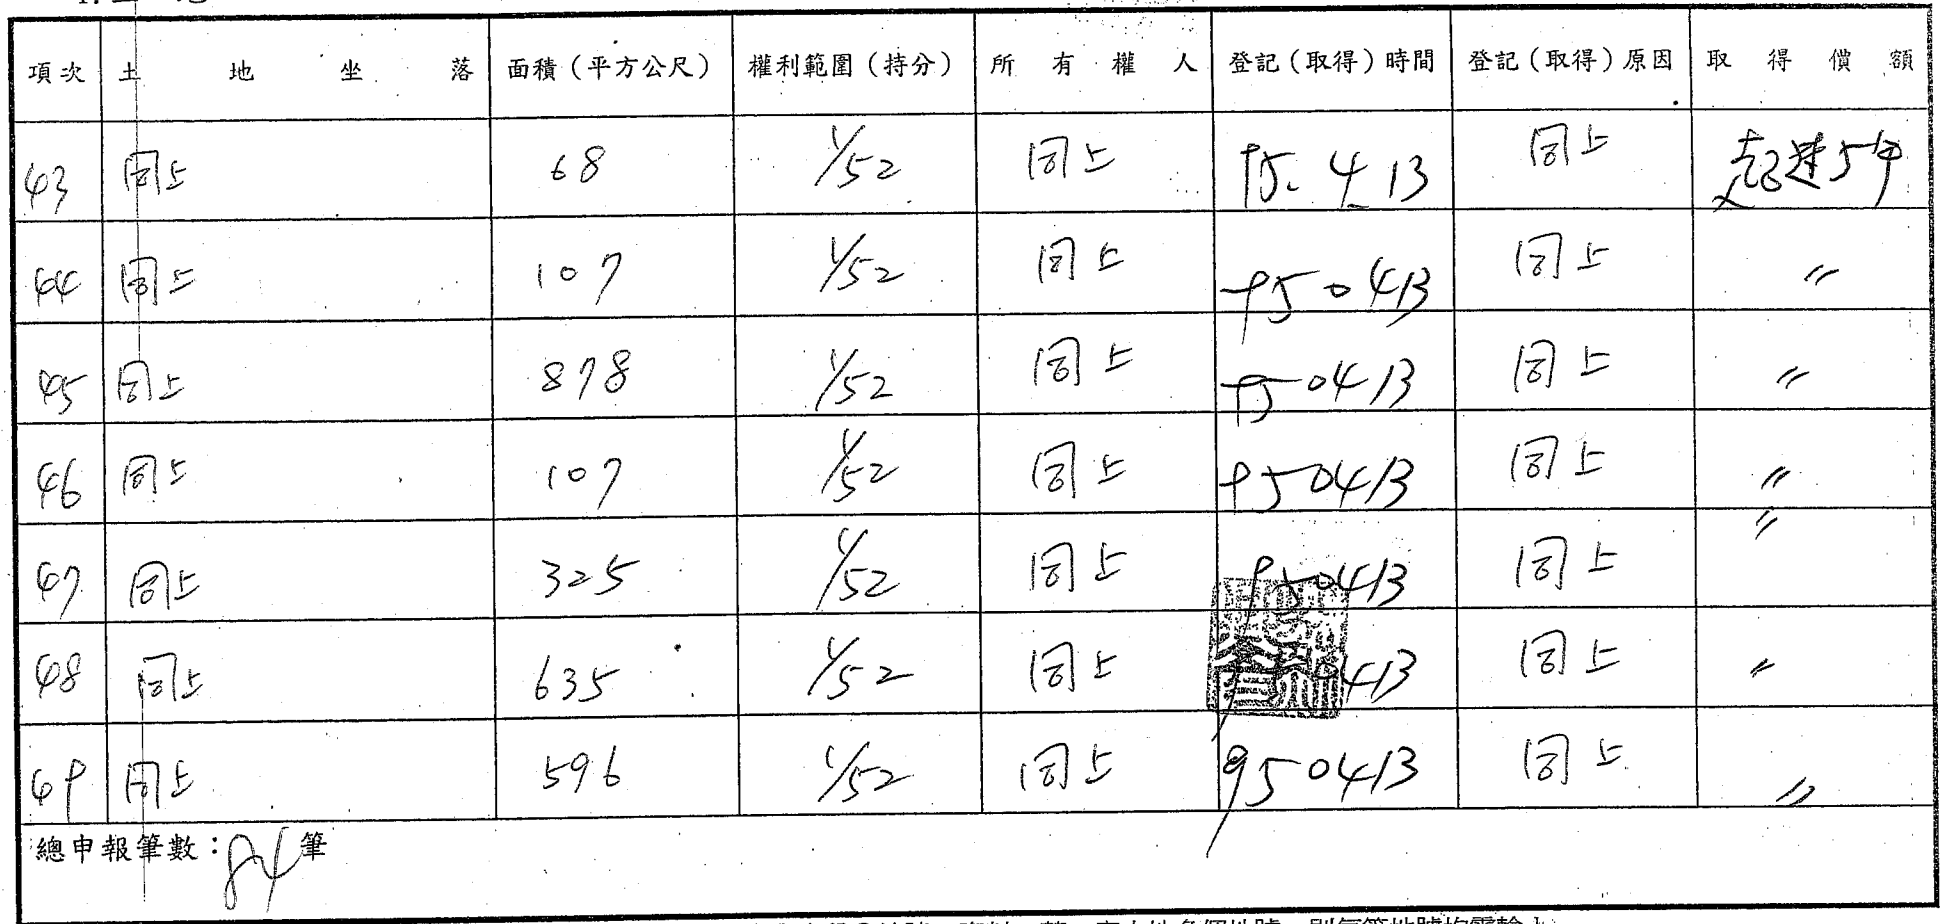 項次 土地坐落 面積（平方公尺） 權利範圍（持分） 所有權人 登記（取得）時間 登記（取得）原因 取得價額
43 同上 68 1/52 同上 95. 4 13 同上 超過5年
44 同上 107 1/52 同上 950413 同上 〃
45 同上 878 1/52 同上 950413 同上 〃
46 同上 107 1/52 同上 950413 同上 〃
47 同上 325 1/52 同上 950413 同上 〃
48 同上 635 1/52 同上 0413 同上 〃
49 同上 596 1/52 同上 950413 同上 〃
總申報筆數：84筆